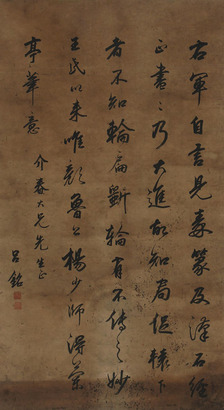 右軍自言見秦篆及漢石經
正書書乃大進故知局促轅下
者不知輪扁斵輪有不傳之妙
王氏以來唯顏魯公楊少師得蘭
亭筆意
介春大兄先生正
呂銘